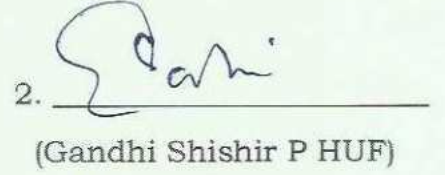 2.
(Gandhi Shishir P HUF)